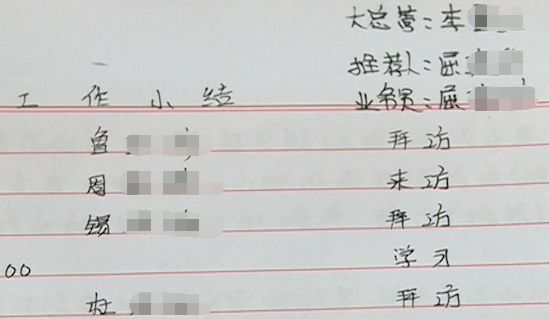 大总管:李
推荐人:屈
工作小结 业务员:屈
鲁 拜访
周 来访
锡 拜访
00 学习
杜 拜访